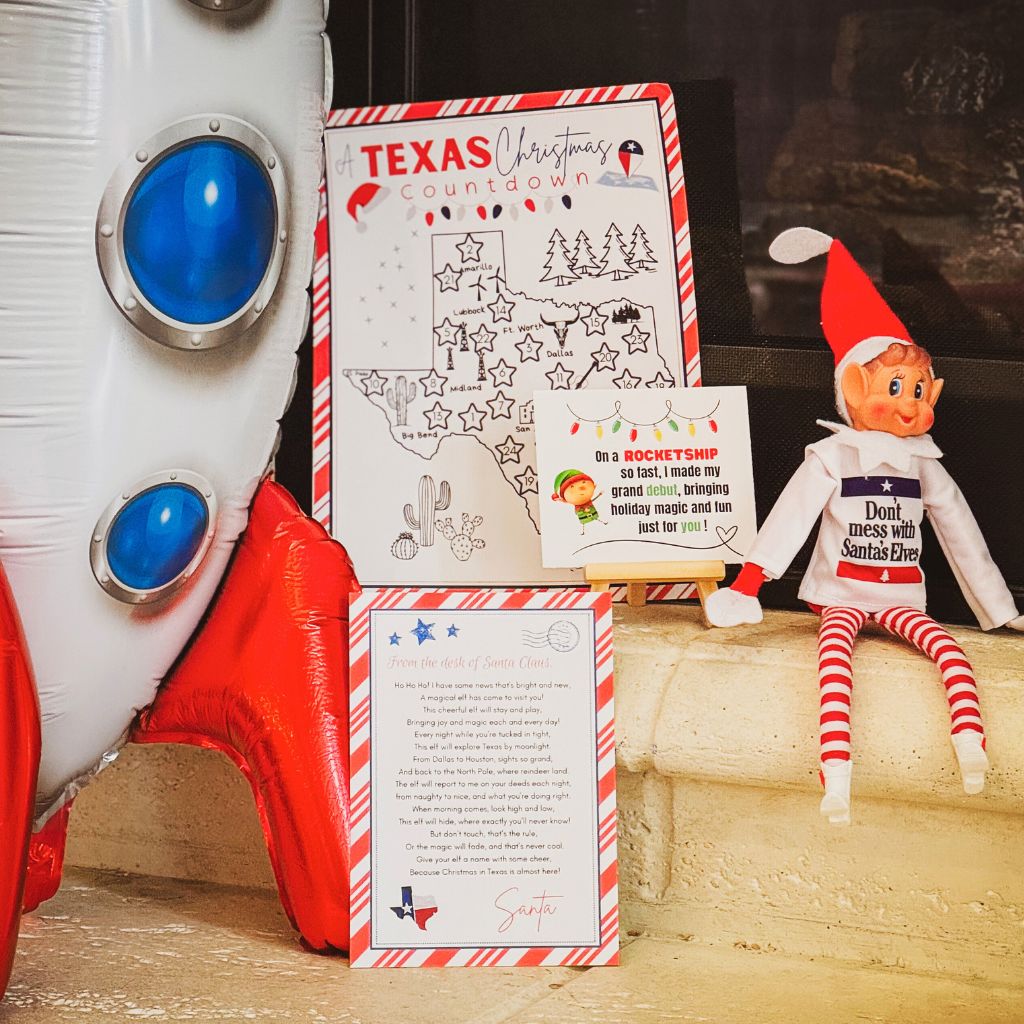 A TEXAS Christmas
Countdown
2
Amarillo
21
Lubbock
14
5
22
Ft. Worth
15
3
Dallas
23
20
El Paso
10
8
Midland
6
11
16
18
13
1
7
Big Bend
San
24
19
On a ROCKETSHIP
so fast, I made my
grand debut, bringing
holiday magic and fun
just for you !
Don't
mess with
Santa's Elves
From the desk of Santa Claus.
Ho Ho Ho! I have some news that's bright and new,
A magical elf has come to visit you!
This cheerful elf will stay and play,
Bringing joy and magic each and every day!
Every night while you're tucked in tight,
This elf will explore Texas by moonlight.
From Dallas to Houston, sights so grand,
And back to the North Pole, where reindeer land.
The elf will report to me on your deeds each night,
from naughty to nice, and what you're doing right.
When morning comes, look high and low,
This elf will hide, where exactly you'll never know!
But don't touch, that's the rule,
Or the magic will fade, and that's never cool.
Give your elf a name with some cheer,
Because Christmas in Texas is almost here!
Santa